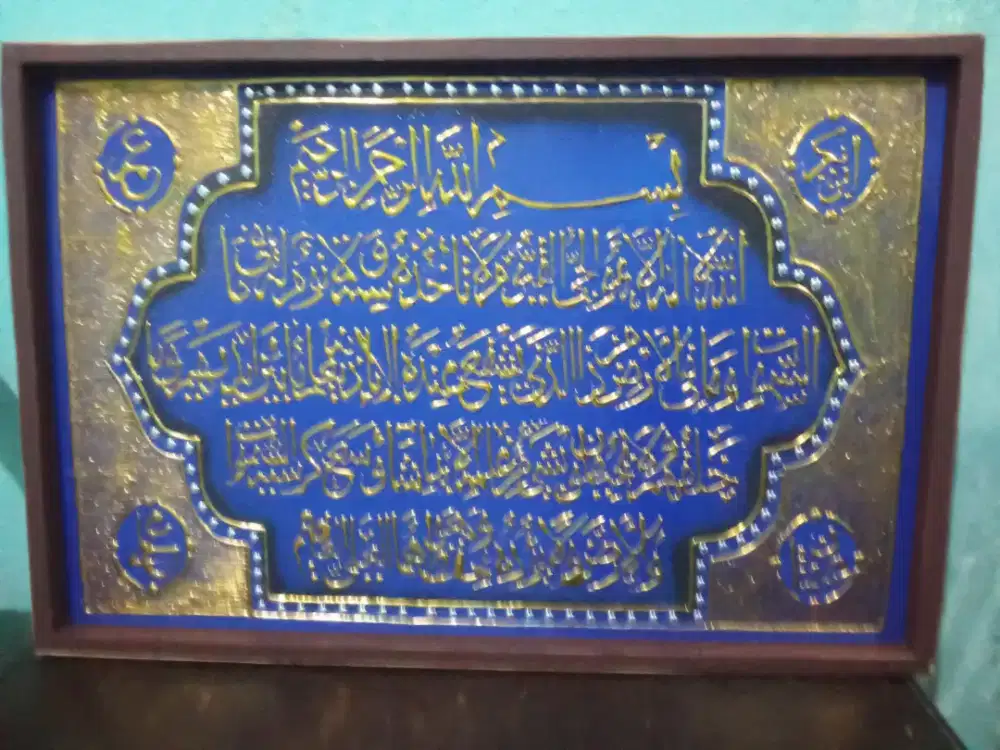 ابوبكر
عمر
بسم الله الرحمن الرحيم
الله لا اله الا هو الحي القيوم لا تاخذه سنة ولا نوم له ما في
السموات وما في الارض من ذا الذي يشفع عنده الا باذنه يعلم ما بين ايديهم وما
خلفهم ولا يحيطون بشيء من علمه الا بما شاء وسع كرسيه السموات
والارض ولا يؤده حفظهما وهو العلي العظيم
عثمان